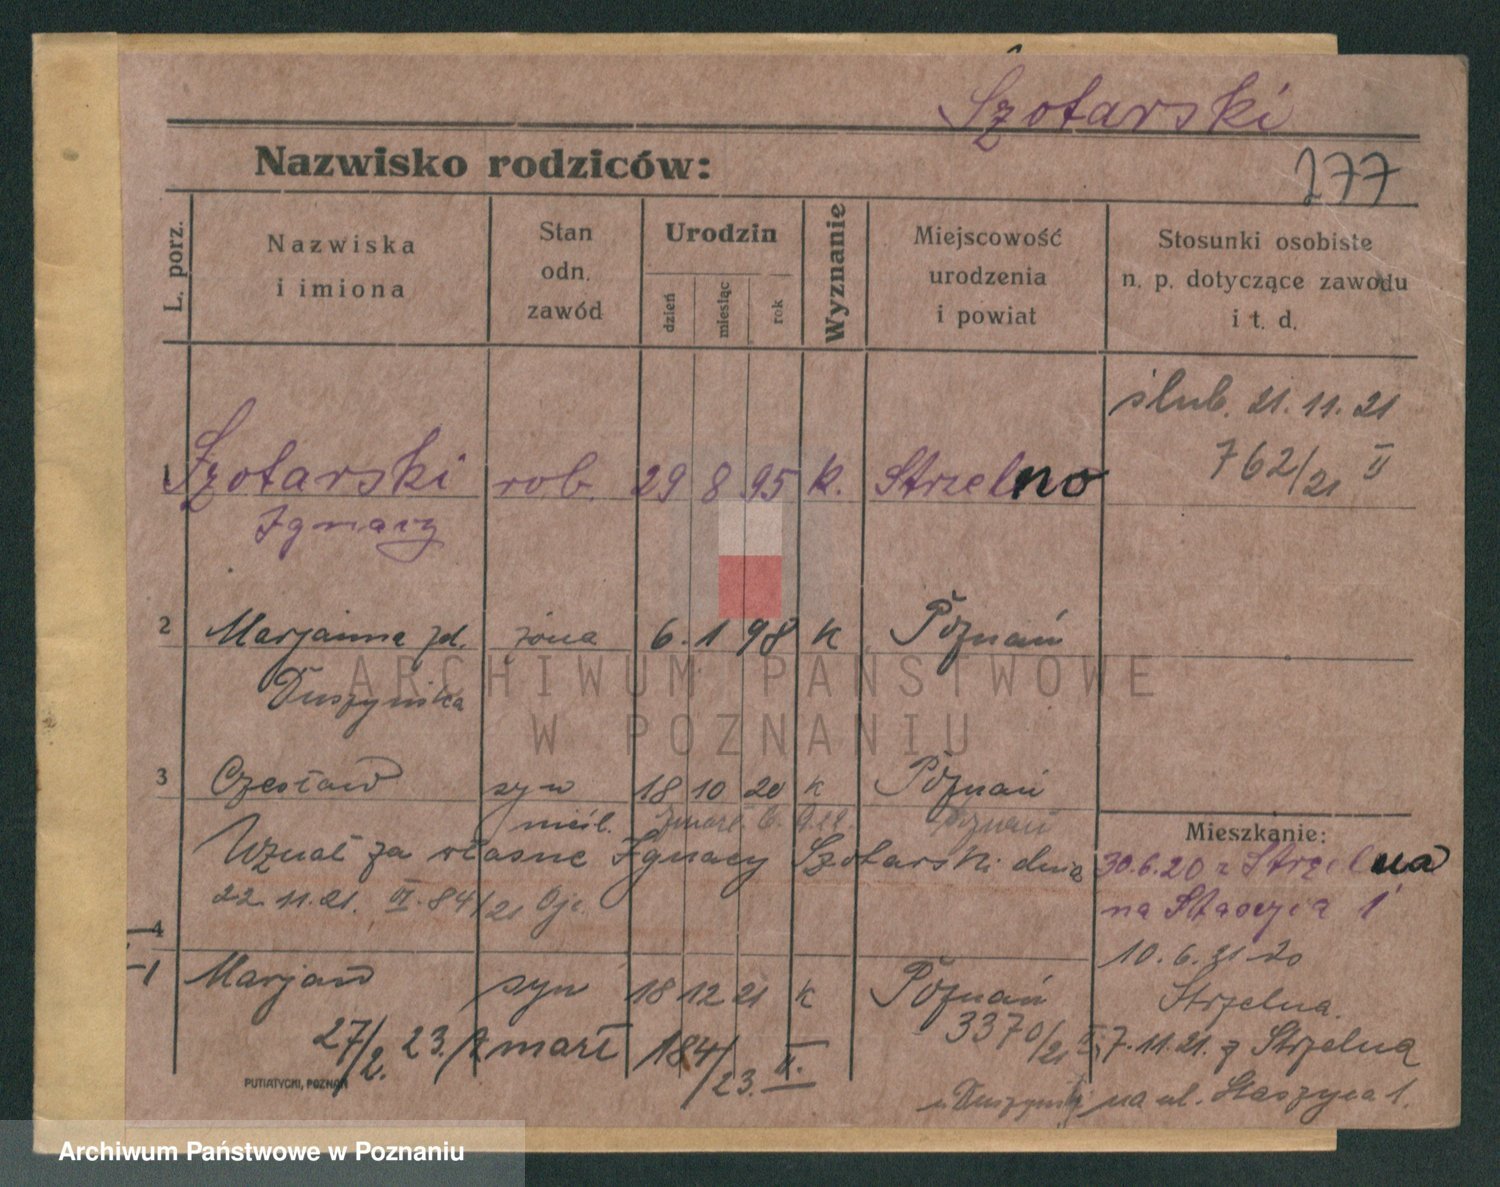 Szotarski
Nazwisko rodziców:
177
L. porz.
Nazwiska
i imiona
Stan
odn.
zawód
Urodzin
dzień
miesiąc
rok
Wyznanie
Miejscowość
urodzenia
i powiat
Stosunki osobiste
n. p. dotyczące zawodu
i t. d.
ślub. 21. 11. 21
762/21 II
1 Szotarski rob. 29 8 95 k. Strzelno
Ignacy
2 Marjanna zd. żona 6. 1 98 k Poznań
Duszyńska
3 Czesław syn 18 10 20 k Poznań
nieśl. Poznań
Wznał za własne Ignacy Szotarski dnia
22. 11. 21. VI. 84/21
4
Mieszkanie:
30.6.20 z Strzelna
na Staszica 1
10. 6. 21 do
Strzelna.
1 Marjan syn 18 12 21 k Poznań
3370/21 II
27/2. 23. zmarł 184/23. II.
7. 11. 21. z Strzelna
na ul. Staszyca 1.
PUTIATYCKI, POZNAŃ
ARCHIWUM PAŃSTWOWE
W POZNANIU
Archiwum Państwowe w Poznaniu